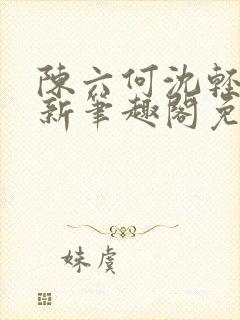 陳六何沈輕
新筆趣閣免
妹虞